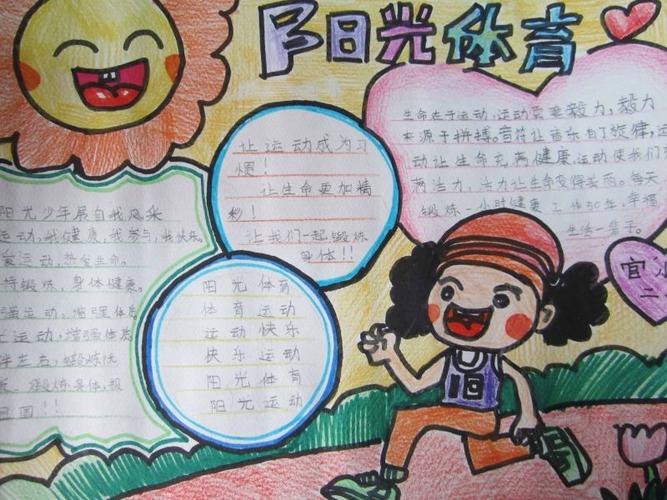 阳光体育
让运动成为习
惯！
让生命更加精
彩！
让我们一起锻炼
身体！！
生命在于运动，运动需要毅力，毅力
来源于拼搏。音符让音乐有了旋律，运
动让生命充满健康，运动使我们充
满活力，活力让生命变得美丽。每天
锻炼一小时健康工作50年，幸福
生活一辈子。
阳光少年展自我风采
运动，我健康，我参与，我快乐。
爱运动，热爱生命。
持锻炼，身体健康。
强运动，增强体质
运动，增强体质
伴左右，锻炼快
锻炼身体，报
国！！
阳光体育
体育运动
运动快乐
快乐运动
阳光体育
阳光运动
宜
二
18